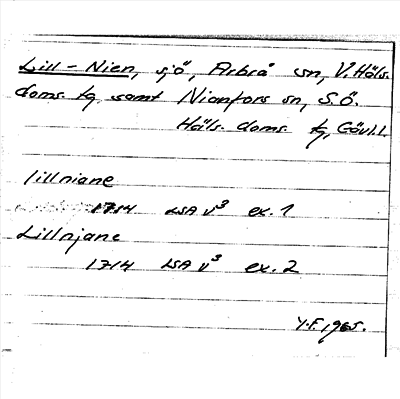 Lill-Nien, sjö, Arbrå sn, V. Häls.
doms. tg samt Nianfors sn, S.Ö.
Häls. doms. tg, Gävl.l.
lillniane
1714 LSA V³ ex. 1
Lillnjane
1714 LSA V³ ex. 2
Y.F. 1965.